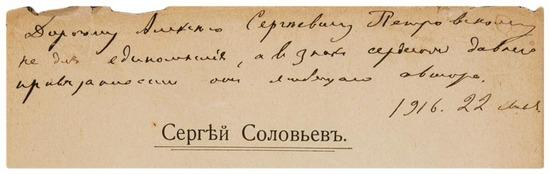 Дорогому Алексѣю Сергѣевичу Петровскому
не для единомыслія, а в знакъ сердечной давней
привязанности отъ любящаго автора.
1916. 22 мая
Сергѣй Соловьевъ.